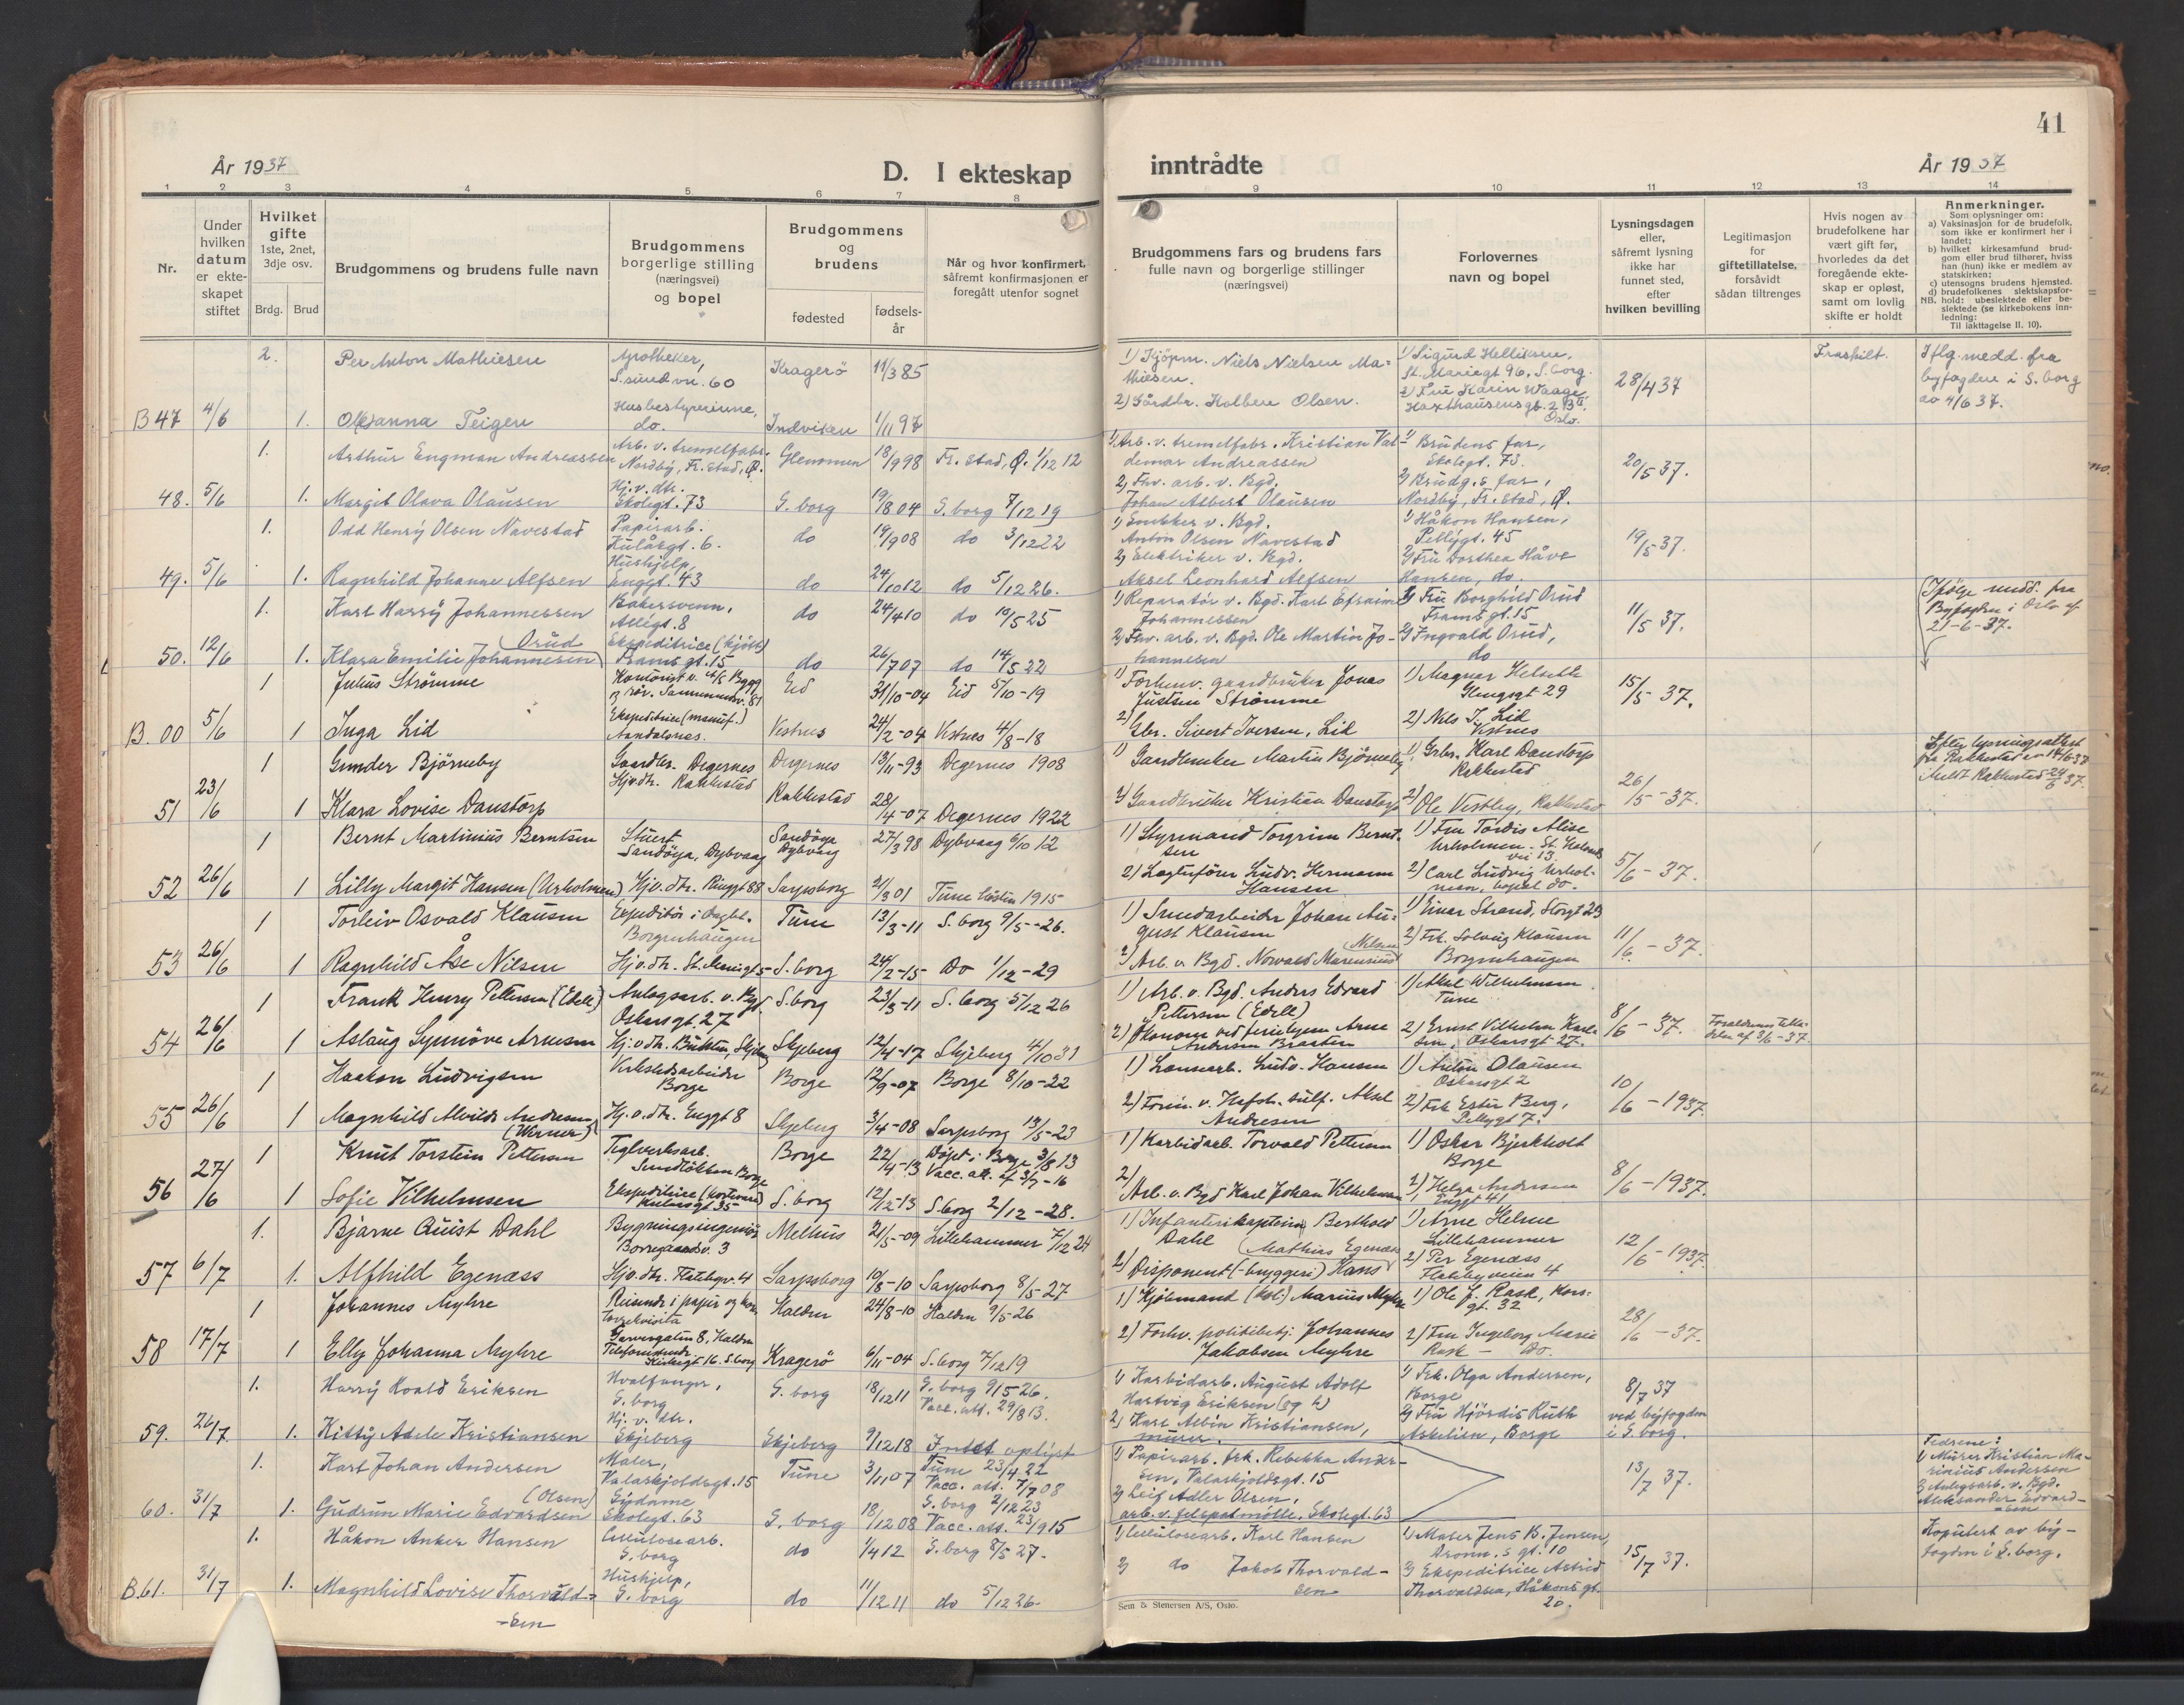 41
År 1937
D. I ekteskap
inntrådte
År 1937
1 2 3 4 5 6 7 8 9 10 11 12 13 14
Nr.
Under hvilken datum er ekteskapet stiftet
Hvilket gifte 1ste, 2net, 3dje osv.
Brdg. Brud
Brudgommens og brudens fulle navn
Brudgommens borgerlige stilling (næringsvei) og bopel
Brudgommens og brudens
fødested
fødsels-år
Når og hvor konfirmert, såfremt konfirmasjonen er foregått utenfor sognet
Brudgommens fars og brudens fars fulle navn og borgerlige stillinger (næringsvei)
Forlovernes navn og bopel
Lysningsdagen eller, såfremt lysning ikke har funnet sted, efter hvilken bevilling
Legitimasjon for giftetillatelse, forsåvidt sådan tiltrenges
Hvis nogen av brudefolkene har vært gift før, hvorledes da det foregående ekteskap er opløst, samt om lovlig skifte er holdt
Anmerkninger.
Som oplysninger om:
a) Vaksinasjon for de brudefolk, som ikke er konfirmert her i landet;
b) hvilket kirkesamfund brudgom eller brud tilhører, hviss han (hun) ikke er medlem av statskirken;
c) utensogns brudens hjemsted.
d) brudefolkenes slektskapsforhold: ubeslektede eller beslektede (se kirkebokens innledning:
NB. Til iakttagelse II. 10).
2. Per Anton Mathiesen Apotheker, S.sundvn. 60 Kragerö 11/3 85 1) Kjöpm. Niels Nielsen Mathiesen. 1) Sigurd Helliksen, St. Mariegt 96, S.borg. 28/4 37 Fraskilt. Iflg. medd. fra byfogden i S.borg av 4/6 37.
B 47 4/6 1. Teigen Husbestyrerinne, do. Indviken 1/11 97 2) Gårdbr. Kolben Olsen. 2) Fru Karin Waage, Haxthausensgt. 2 B III, Oslo.
1. Arthur Engman Andreassen Nordby, Fr.stad, Ø. Glemmen 18/9 98 Fr.stad, Ø. 1/12 12 1) Arb. v. tremelfabr. Kristian Valdemar Andreassen 1) Brudens far, Skolegt. 73. 20/5 37.
48. 5/6 1. Margit Olava Olausen Hj.v.dtr. Skolegt. 73 S.borg 19/8 04 S.borg 7/12 19 2) Fhv. arb. v. Bgd. Johan Albert Olausen 2) Brudg.s far, Nordby, Fr.stad, Ø.
1. Odd Henry Olsen Navestad Papirarb. Kulåsgt. 6. do 19/9 08 do 3/12 22 1) Snekker v. Bgd. Anton Olsen Navestad 1) Håkon Hansen, Pellygt. 45 19/5 37.
49. 5/6 1. Ragnhild Johanne Alfsen Hushjelp, Enggt. 43 do 24/10 12 do 5/12 26. 2) Elektriker v. Bgd. Aksel Leonhard Alfsen 2) Fru Dorthea Håve Hansen, do.
1. Karl Harry Johannessen Bakersvenn, Allégt. 8 do 24/4 10 do 10/5 25 1) Reparatör v. Bgd. Karl Efraim Johannessen 1) Fru Borghild Orud Framsgt. 15 11/5 37. Ifölge medd. fra Byfogden i Oslo af 21-6-37.
50. 12/6 1. Klara Emilie Johannesen (Orud) Ekspeditrice (kjött) Framsgt. 15 do 26/7 07 do 14/5 22 2) Fhv. arb. v. Bgd. Ole Martin Johannesen 2) Ingvald Orud, do
1 Julius Strömme Eid 31/10-04 Eid 5/10-19 1) Forhenv. gaardbruker Jonas Justsen Strömme 1) Magnar Helseth Glengsgt 29 15/5 37.
B. 00 5/6 1 Inga Lid Ekspeditrice (manuf.) Aandalsnes. Vestnes 24/2-04 Vestnes 4/8-18 2) Gbr. Sivert Iversen, Lid 2) Nils J. Lid Vestnes
1 Gunder Björneby Gaardbr. Degernes Degernes 13/11-93 Degernes 1908 1) Gaardbruker Martin Björneby 1) Grbr. Karl Danstorp Rakkestad 26/5-37. Efter lysningsattest fra Rakkestad av 14/6 37 Meldt Rakkestad 24/6 37.
51 23/6 1 Klara Lovise Danstorp Hjv.dtr. Rakkestad Rakkestad 28/4-07 Degernes 1922 2) Gaardbruker Kristian Danstorp 2) Ole Vestby, Rakkestad
1 Bernt Martinius Berntsen Stuert Sandöya, Dybvaag Sandöya Dybvaag 27/3 98 Dybvaag 6/10 12 1) Styrmand Torgrim Berntsen 1) Fru Tordis Alise Urholmen. St. Halvards vei 13 5/6-37.
52 26/6 1 Lilly Margit Hansen (Urholmen) Hjv.dtr. Ringgt 88 Sarpsborg 21/3 01 Tune hösten 1915 2) Lagtuförer Ludv. Hermann Hansen 2) Carl Ludvig Urholmen, bopæl do.
1 Torleiv Osvald Klausen Borgenhaugen Tune 13/3-11 S.borg 9/5-26. 1) Smedarbeider Johan August Klausen 1) Einar Strand, Storgt 23 11/6-37.
53 26/6 1 Ragnhild Åse Nilsen Hjv.dtr. St. Mariegt 5 S.borg 24/2-15 Do 1/12-29 2) Arb. v Bgd. Norvald Marensius Nilsen 2) Frk. Solveig Klausen Borgenhaugen
1 Frank Henry Pettersen (Edell) Anlegsarb. v. Bgd. Oskarsgt. 27 S.borg 23/3-11 S.borg 5/12 26 1) Arb. v. Bgd. Anders Edvard Pettersen (Edell) 1) Aksel Wilhelmsen Tune 8/6-37. Forældrenes tilladelse af 3/6-37.
54 26/6 1 Aslaug Synnöve Arnesen Hj.v.dtr. Skjeberg 12/4-17 Skjeberg 4/10 31 2) Ökonom ved feriehjem Arne Andersen Braaten 2) Ernst Vilhelm Karlsen, Oskarsgt 27.
1 Haakon Ludvigsen Verkstedsarbeider Borge Borge 12/9-07 Borge 8/10-22 1) Ludv. Hansen 1) Anton Olausen Oskarsgt 2 10/6-1937.
55 26/6 1 Magnhild Alvilde Andresen (Werner) Hj.v.dtr. Enggt 8 Skjeberg 3/4-08 Sarpsborg 13/5-23 2) Form. v. Hafsl. sulf. Aksel Andresen 2) Frk Ester Berg, Pellygt 7.
1 Knut Torstein Pettersen Teglverksarb. Borge Borge 22/4-13 Döpt i Borge 3/8 13 Vacc. att. af 3/7-16 1) Karbidarb. Torvald Pettersen 1) Oskar Bjerkholt Borge 8/6-1937.
56 27/6 1 Sofie Vilhelmsen S.borg 12/12-13 S.borg 2/12-28. 2) Arb. v. Bgd Karl Johan Vilhelmsen 2) Helga Andresen Enggt 41
1. Bjarne Quist Dahl Bygningsingeniör Borregaardsv. 3 Melhus 21/5-09 Lillehammer 7/12 24 1) Infanterikaptein Berthold Dahl 1) Arne Helme Lillehammer 12/6-1937.
57 6/7 1. Alfhild Egenæss Hjv.dtr. Flatebyv. 4 Sarpsborg 10/8-10 Sarpsborg 8/5-27 2) Disponent (-bryggeri) Hans Mathias Egenæs 2) Per Egenæss Flatebyveien 4
1 Johannes Myhre Garvergaten 8, Halden Halden 24/8-10 Halden 9/5-26 1) Kjöbmand (kol.) Marius Myhre 1) Ole J. Rask, Korsgt. 32 28/6-37.
58 17/7 1 Elly Johanna Myhre Kirkegt 16. S.borg Kragerö 6/11-04 S.borg 7/12 19 2) Forhv. politibetj. Johannes Jakobsen Myhre 2) Fru Ingeborg Marie Rask — Do.
1. Harry Roald Eriksen Hvalfanger, S.borg S.borg 18/12 11 S.borg 9/5 26. Vacc. att. 29/8 13. 1) Karbidarb. August Adolf Hartvig Eriksen 1) Frk. Olga Andersen, Borge 8/7 37 ved byfogden i S.borg.
59. 26/7 1. Kitty Adele Kristiansen Hj.v.dtr. Skjeberg Skjeberg 9/12 18 Intet oplyst 2) Karl Albin Kristiansen, murer. 2) Fru Hjördis Ruth Askelien, Borge
1. Karl Johan Andersen Maler, Valaskjoldsgt. 15 Tune 3/11 07 Tune 23/4 22 Vacc. att. 7/7 08 1) Papirarb. frk. Rebekka Andersen, Valaskjoldsgt. 15 13/7 37. Fedrene: 1) Murer Kristian Marinius Andersen 2) Anlegsarb. v. Bgd. Aleksander Edvardsen
60. 31/7 1. Gudrun Marie Edvardsen (Olsen) Sydame, Skolegt. 63 S.borg 18/12 08 S.borg 2/12 23 Vacc. att. 23/9 15 2) Leif Adler Olsen, arb. v. feltspatmölle. Skolegt. 63
1. Håkon Anker Hansen Cellulosearb. S.borg do 1/4 12 S.borg 8/5 27. 1) Cellulosearb. Karl Hansen 1) Maler Jens B. Jensen, Dronn.s gt. 10 15/7 37. Kopulert av byfogden i S.borg.
B. 61. 31/7 1. Magnhild Lovise Thorvaldsen Hushjelp, S.borg do 11/12 11 do 5/12 26. 2) do Jakob Thorvaldsen 2) Ekspeditrice Astrid Thorvaldsen, Håkonsgt. 20.
Sem & Stenersen A/S, Oslo.